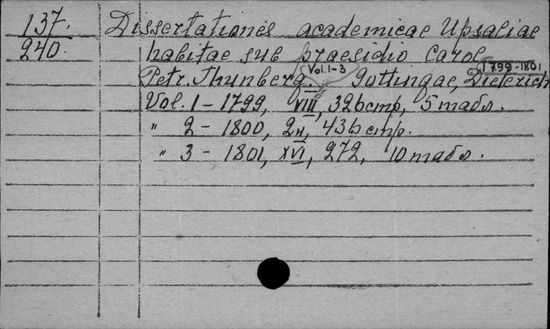 137. Dissertationes academicae Upsaliae
240. habitae sub praesidio Carol.
Petr. Thunberg. Vol. 1-3 Gottingae, Dieterich 1799-1801
Vol. 1 - 1799, VIII, 325 стр, 5 табл.
" 2 - 1800, 2н, 436 стр.
" 3 - 1801, XVI, 272, 10 табл.